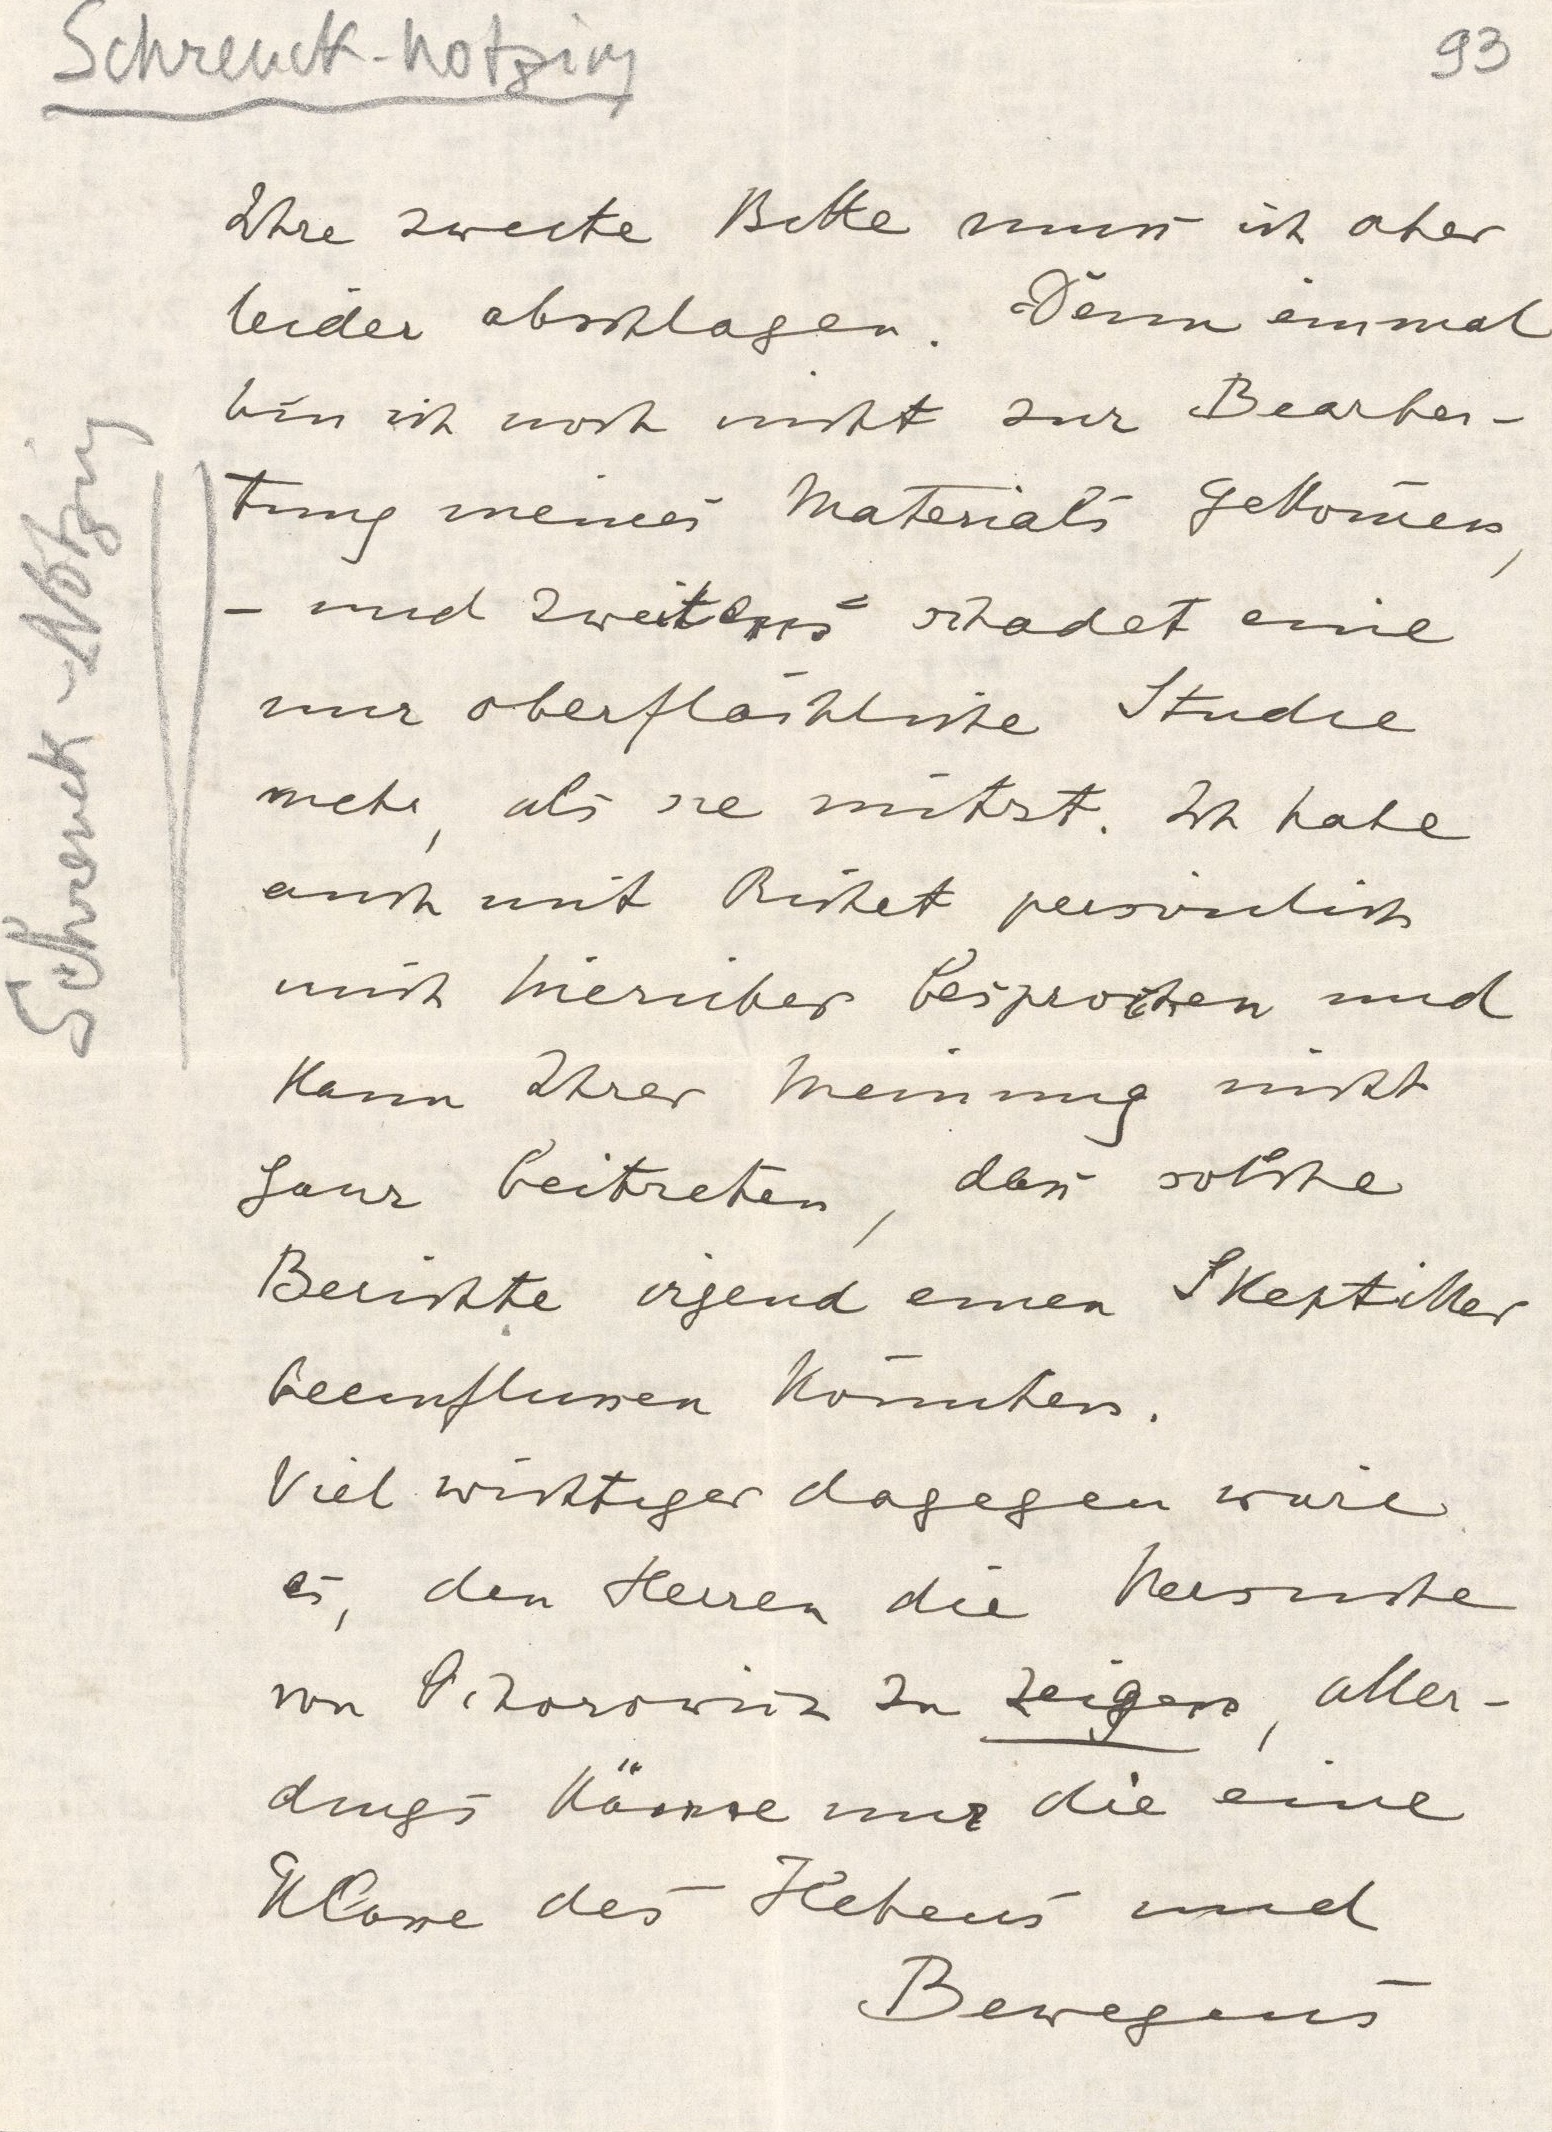 Schrenck-Notzing
93
Ihre zweite Bitte muss ich aber
leider abschlagen. Denn einmal
bin ich noch nicht zur Bearbei-
tung meines Materials gekom̄en,
- und zweitens schadet eine
nur oberflächliche Studie
mehr, als sie nützt. Ich habe
auch mit Richet persönlich
mich hierüber besprochen und
kann Ihrer Meinung nicht
ganz beitreten, dass solche
Berichte irgend einen Skeptiker
beeinflussen könnten.
Viel wichtiger dagegen wäre
es, den Herren die Versuche
von Ochorowicz zu zeigen, aller-
dings käme nur die eine
Klasse des Hebens und
Bewegens
Schrenck-Notzing